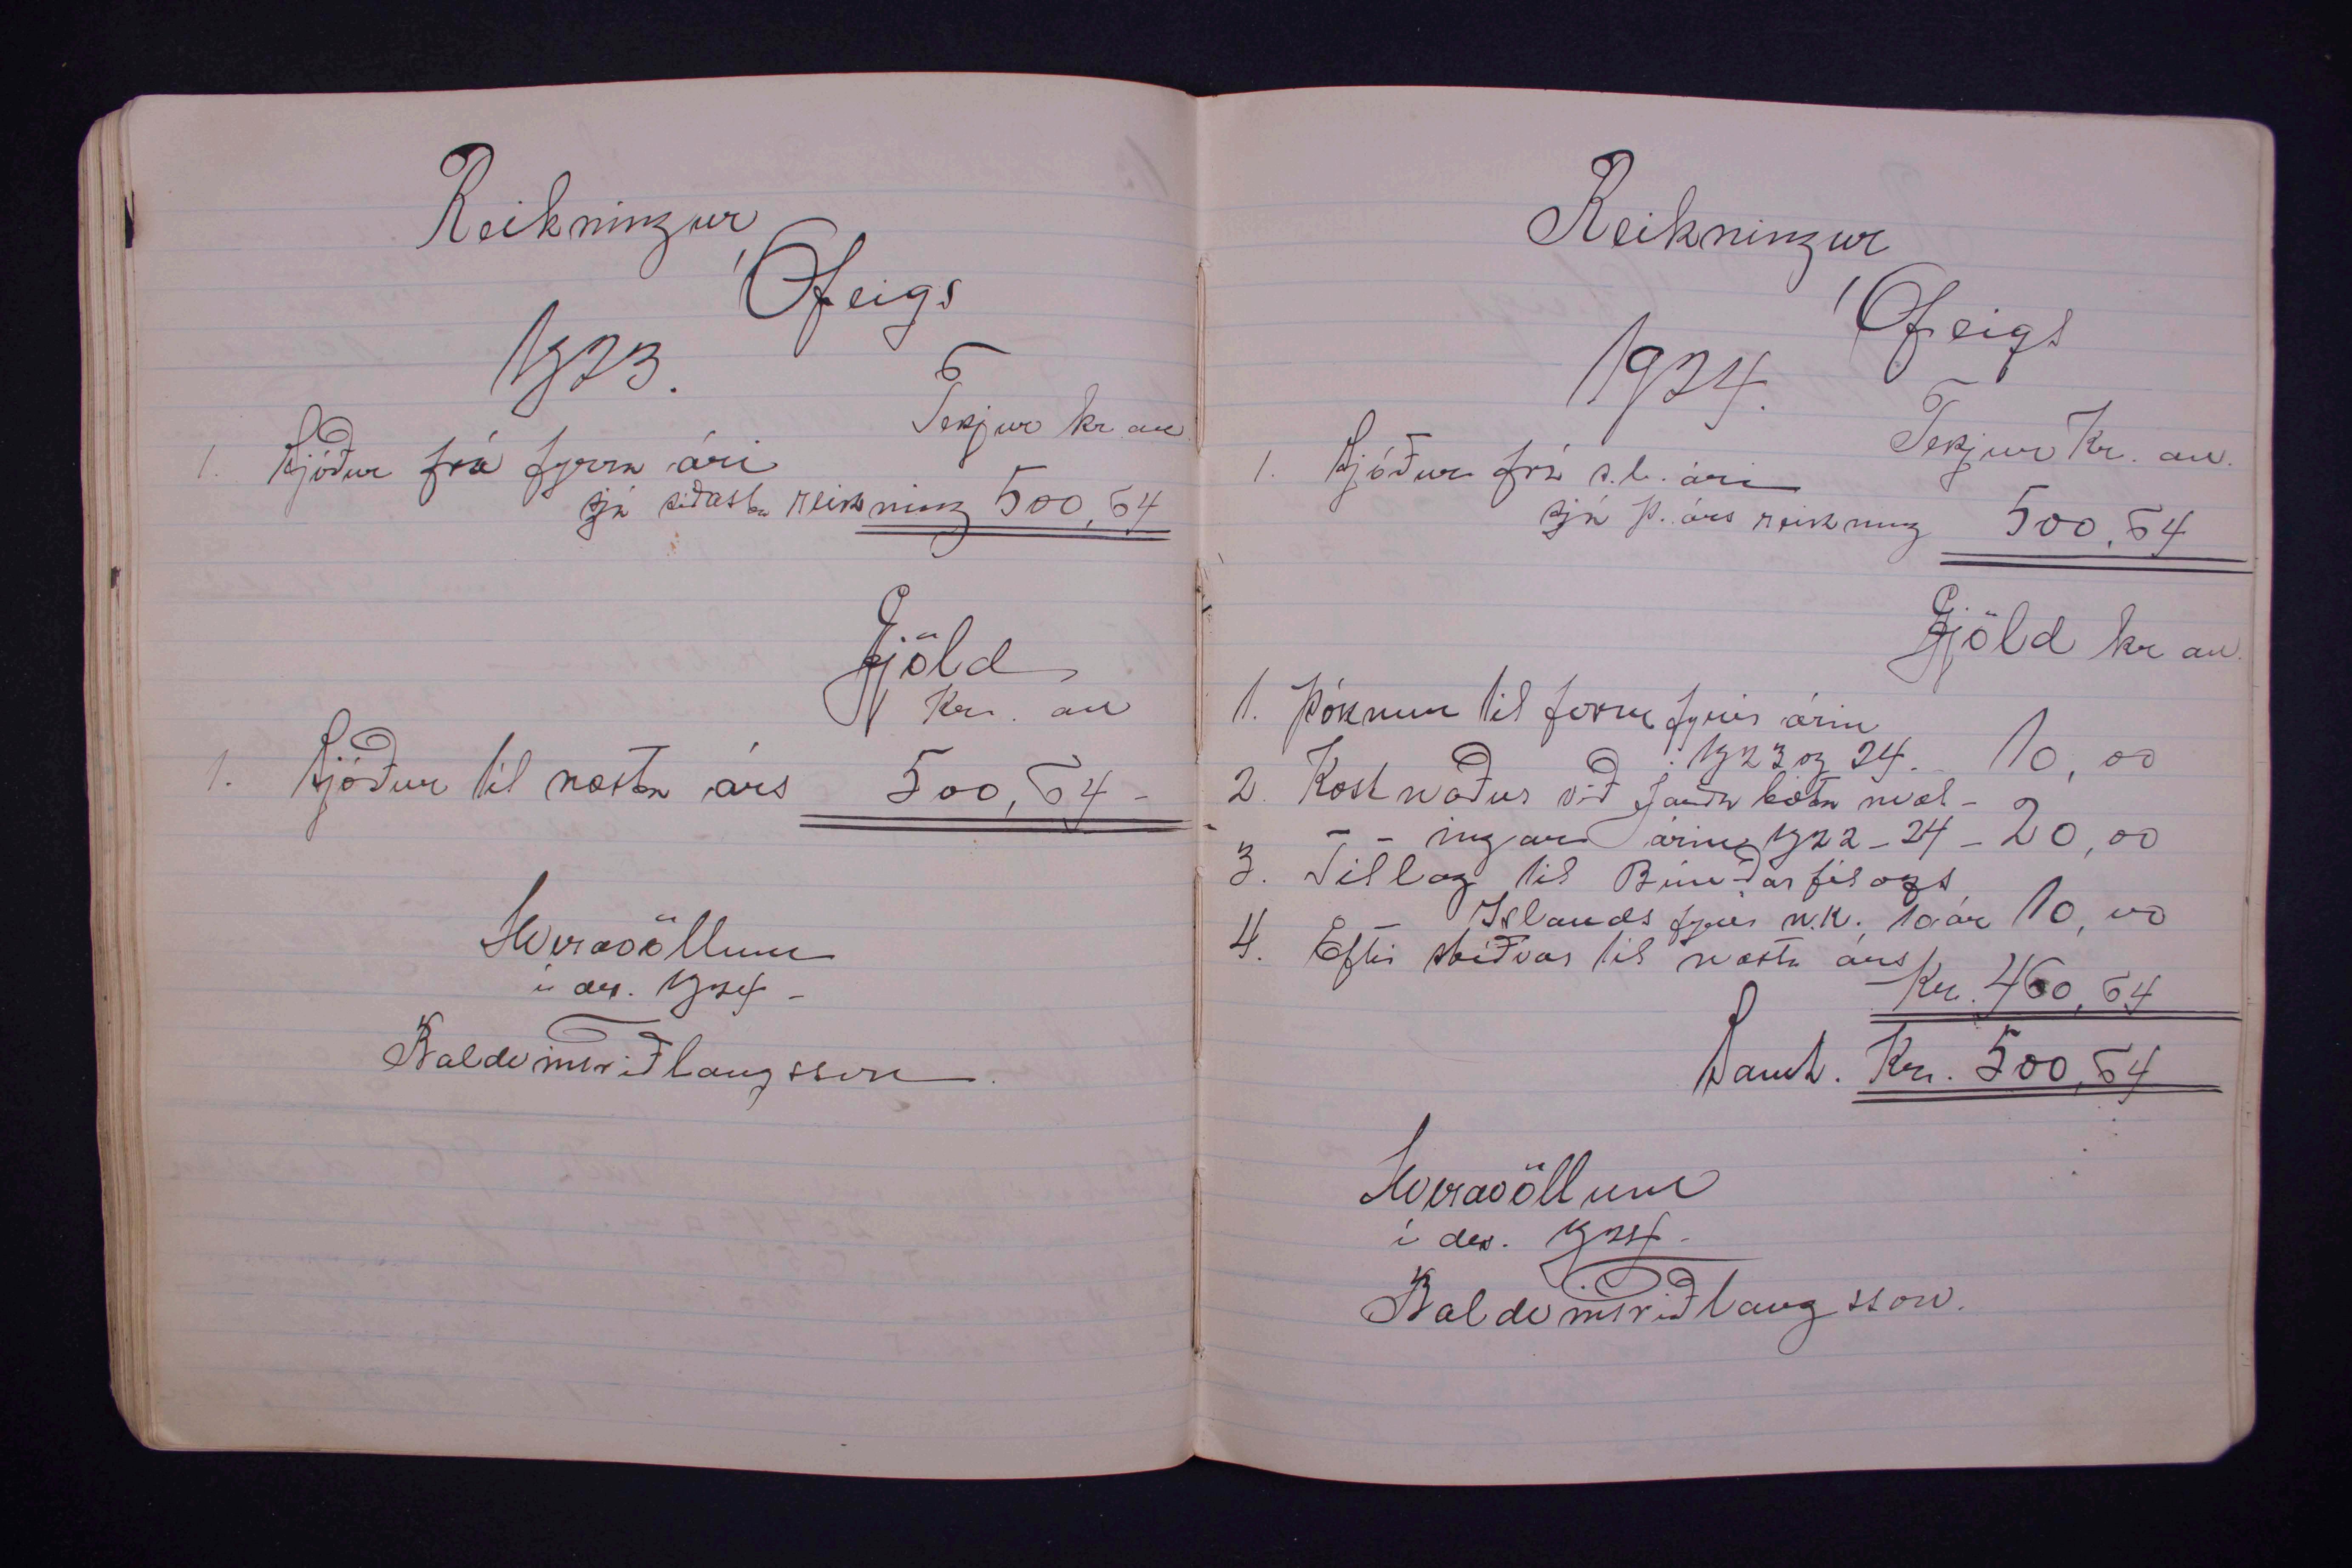 Reikningur
Ófeigs
1923.
Tekjur kr. au
1. Sjóður frá fyrra ári
sjá síðasta reikning 500,54
Gjöld
Kr. au
1. Sjóður til næsta árs 500,54 -
Hveravöllum
í des. 1924 -
Baldvin Friðlaugsson.
Reikningur
Ófeigs
1924.
Tekjur Kr. au.
1. Sjóður frá s.l. ári
sjá þ. árs reikning 500,54
Gjöld kr au.
1. Þóknun til form fyrir árin
1923 og 24. 10,00
2. Kostnaður við jarðabóta mæl-
- - ingar árin 1922-24 - 20,00
3. Tillag til Búnaðarfélags
Islands fyrir n.k. 10 ár 10,00
4. Eftirstöðvar til næsta árs
Kr. 460,54
Samt. Kr. 500,54
Hveravöllum
í des. 1924 -
Baldvin Friðlaugsson.